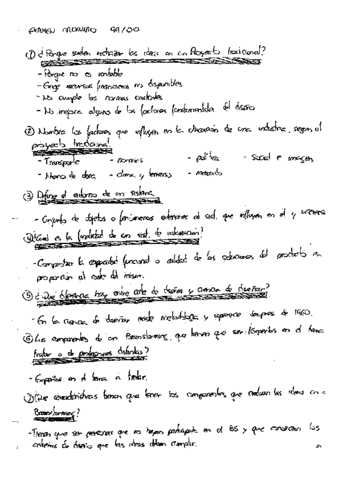 EXAMEN ORDINARIO 99/00
① ¿Porque suelen rechazar las ideas en un Proyecto tradicional?
- Porque no es rentable
- Exige recursos financieros no disponibles
- No cumple las normas
- No mejora alguno de los factores fundamentales del diseño
② Nombra los factores que influyen en la ubicación de una industria, según el
proyecto tradicional
- Transporte - normas - política - Social e imagen
- Mano de obra - clima y terreno - mercado
③ Define el entorno de un sistema
- Conjunto de objetos o fenómenos exteriores al sist. que influyen en él y viceversa
④ ¿Cual es la finalidad de un sist. de valoración?
- Comparar la capacidad funcional o calidad de las soluciones del producto en
proporción al coste del mismo.
⑤ ¿Que diferencia hay entre arte de diseñar y ciencia de diseñar?
- En la ciencia de diseñar existe metodología y aparece después de 1960.
⑥ Los componentes de un Brainstorming, que tienen que ser ¿Expertos en el tema
tratar o de profesiones distintas?
- Expertos en el tema a tratar.
⑦ ¿Que características tienen que tener los componentes, que evaluan las ideas en un
Brainstorming?
- Tienen que ser personas que no hayan participado en el BS y que conozcan los
criterios de diseño que las ideas deben cumplir.